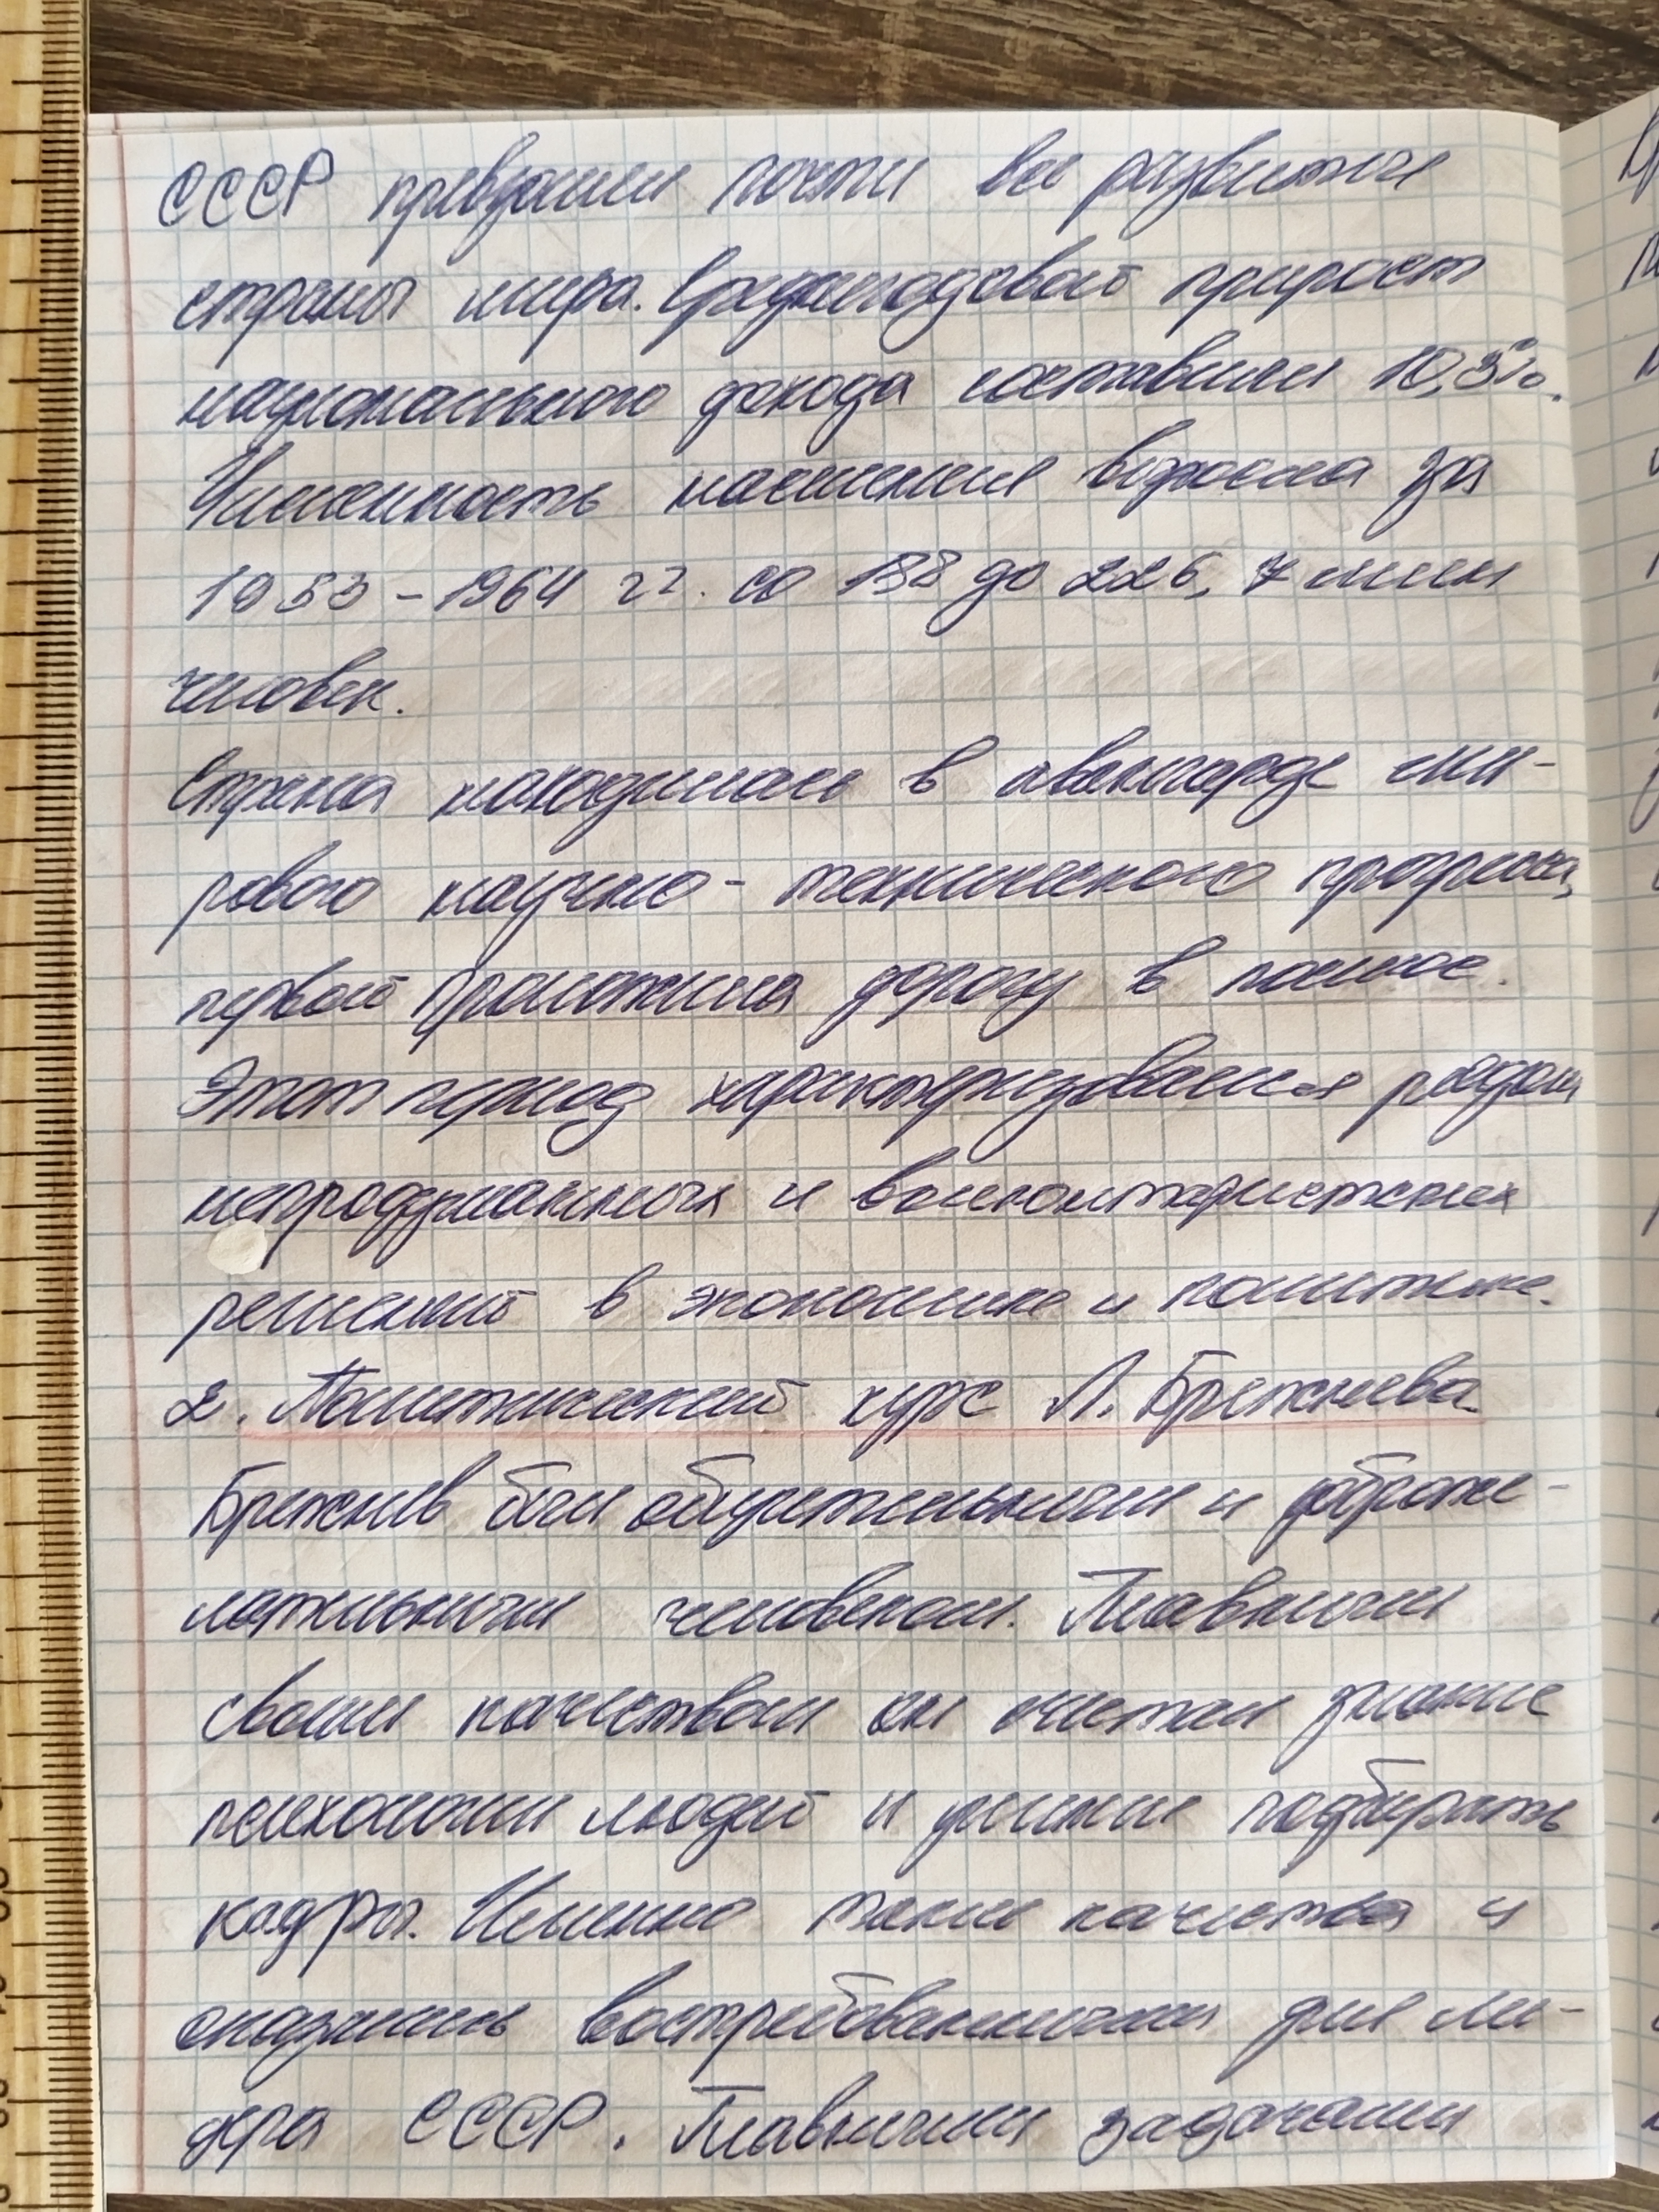 СССР превзошел почти все развитые
страны мира. Среднегодовой прирост
национального дохода составил 10,3%.
Численность населения возросла за
1953-1964 гг. со 188 до 226,7 млн
человек.
Страна находилась в авангарде ми-
рового научно-технического прогресса,
первой проложила дорогу в космос.
Этот период характеризовался рядом
непродуманных и волюнтаристских
решений в экономике и политике.
2. Политический курс Л. Брежнева.
Брежнев был обаятельным и доброже-
лательным человеком. Главным
своим качеством он считал знание
психологии людей и умение подбирать
кадры. Именно такие качества и
оказались востребованными для ли-
дера СССР. Главными задачами